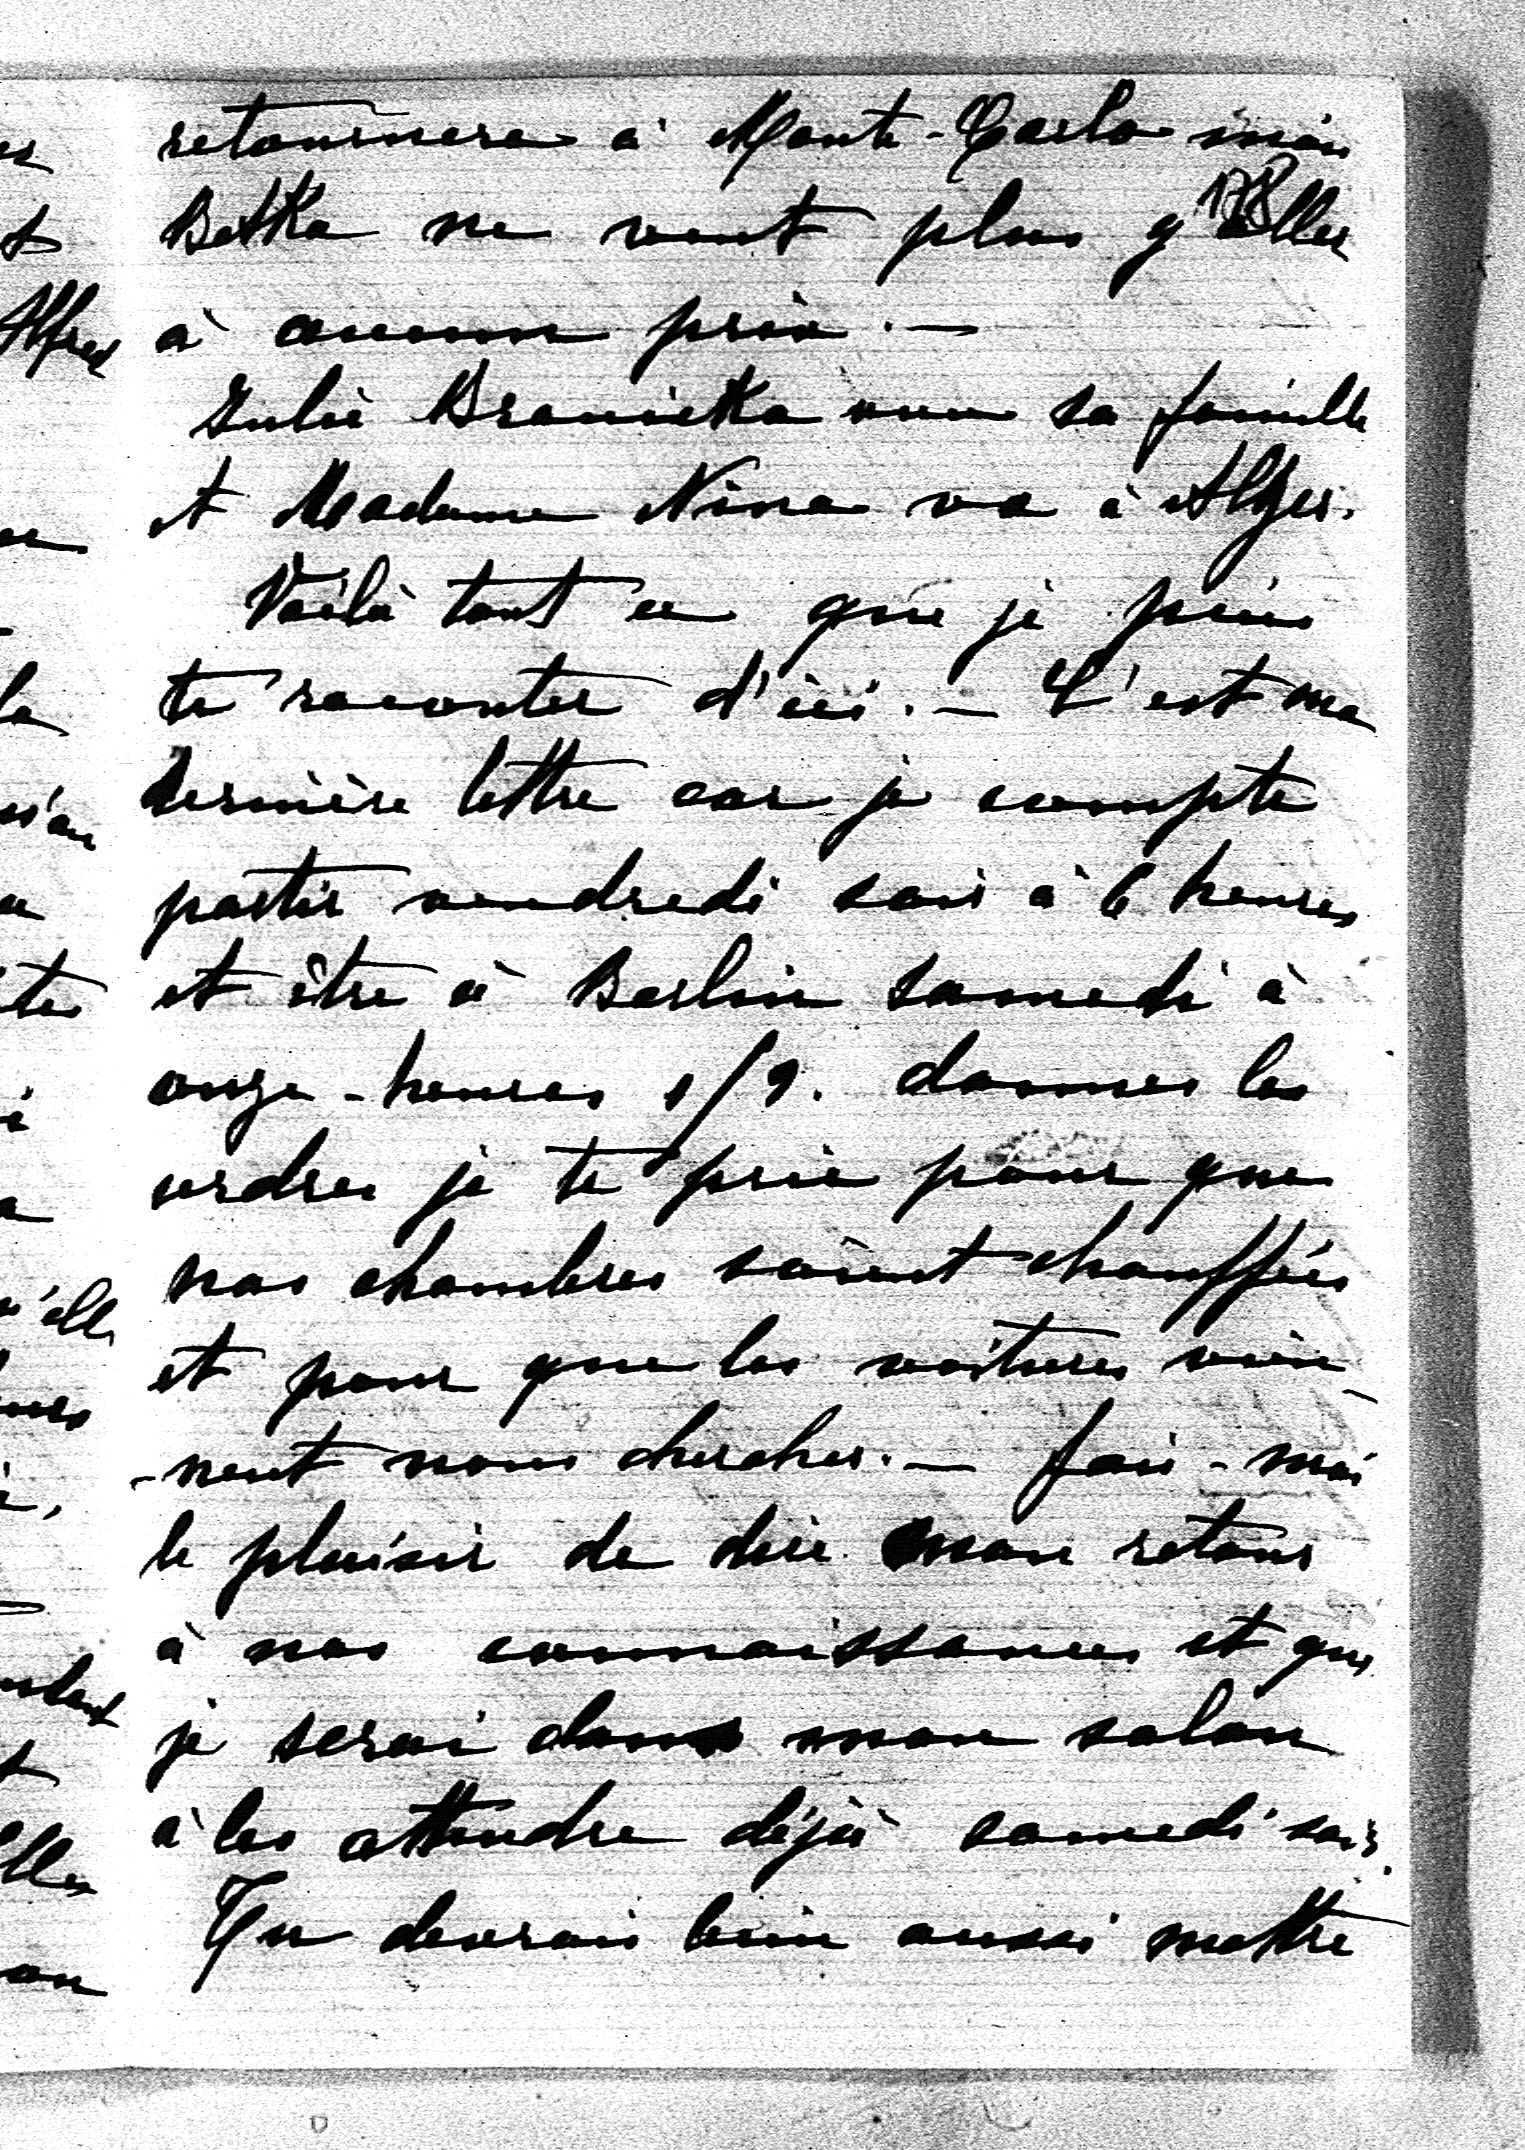 retournera à Monte-Carlo mais
178
Betka ne veut plus y aller
à aucun prix. —
Julie Branicka avec sa famille
et Madame Nina va à Alger.
Voilà tout ce que je puis
te raconter d'ici. — C'est ma
dernière lettre car je compte
partir vendredi soir à 6 heures
et être à Berlin samedi à
onze-heures 1/2. donnes les
ordres je te prie pour que
nos chambres soient chauffées
et pour que les voitures vien-
-nent nous chercher. — fais-moi
le plaisir de dire mon retour
à nos connaissances et que
je serai dans mon salon
à les attendre déjà samedi soir.
Tu devrais bien aussi mettre